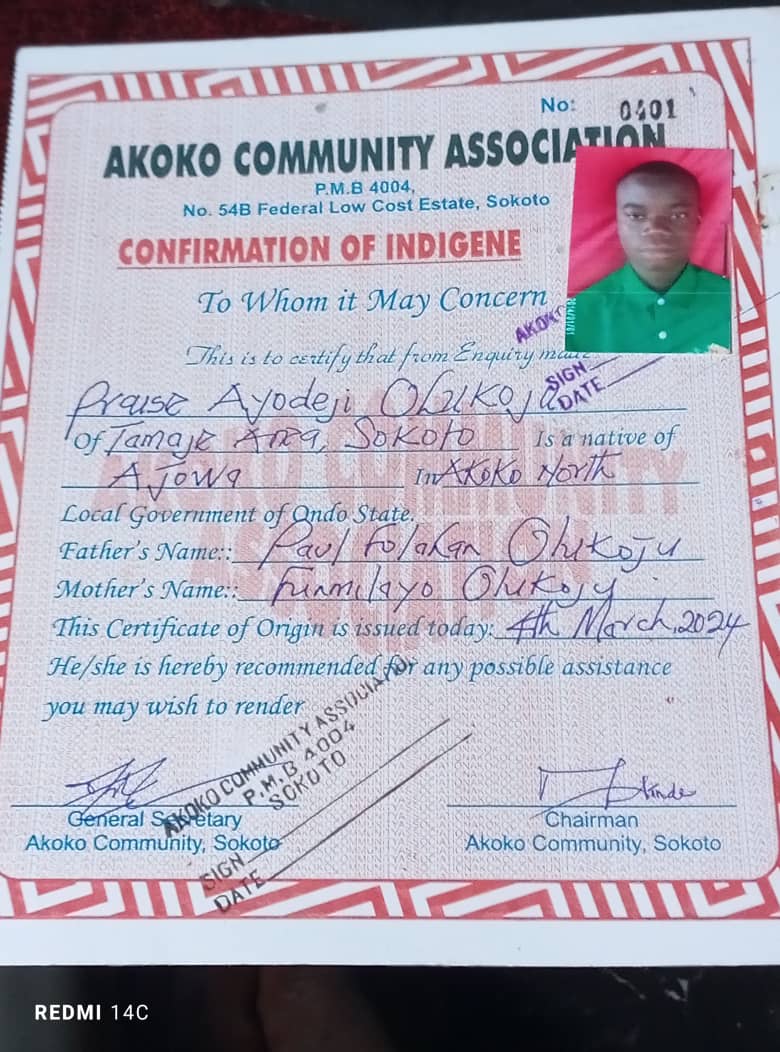 No: 0401
AKOKO COMMUNITY ASSOCIATION
P.M.B 4004,
No. 54B Federal Low Cost Estate, Sokoto
CONFIRMATION OF INDIGENE
To Whom it May Concern
This is to certify that from Enquiry made
Praise Ayodeji Olukoju
Of Tamaje Area, Sokoto Is a native of
Ajowa In Akoko North
Local Government of Ondo State.
Father's Name:: Paul Folahan Olukoju
Mother's Name:: Funmilayo Olukoju
This Certificate of Origin is issued today: 4th March, 2024
He/she is hereby recommended for any possible assistance
you may wish to render
AKOKO COMMUNITY ASSOCIATION
P.M.B 4004
SOKOTO
SIGN
DATE
AKOKO
SIGN
DATE
General Secretary
Akoko Community, Sokoto
Chairman
Akoko Community, Sokoto
AKOKO COMMUNITY
ASSOCIATION
REDMI 14C